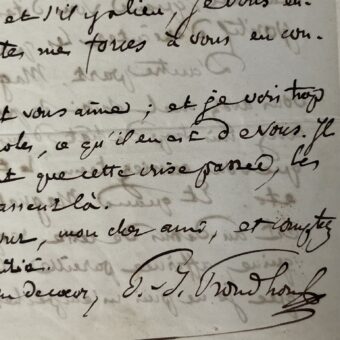 et s'il y a lieu, je vous en-
tes mes forces à vous en con-
t vous aime ; et je vois trop
oles, ce qu'il en est de vous. Il
t que cette crise passée, les
là.
mon cher ami, et comptez
de cœur, P.-J. Proudhon